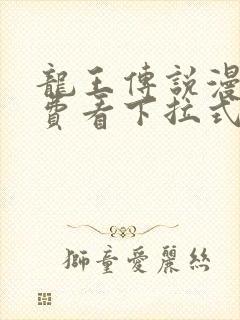 龍王傳說漫
費看下拉式
獅童愛麗絲